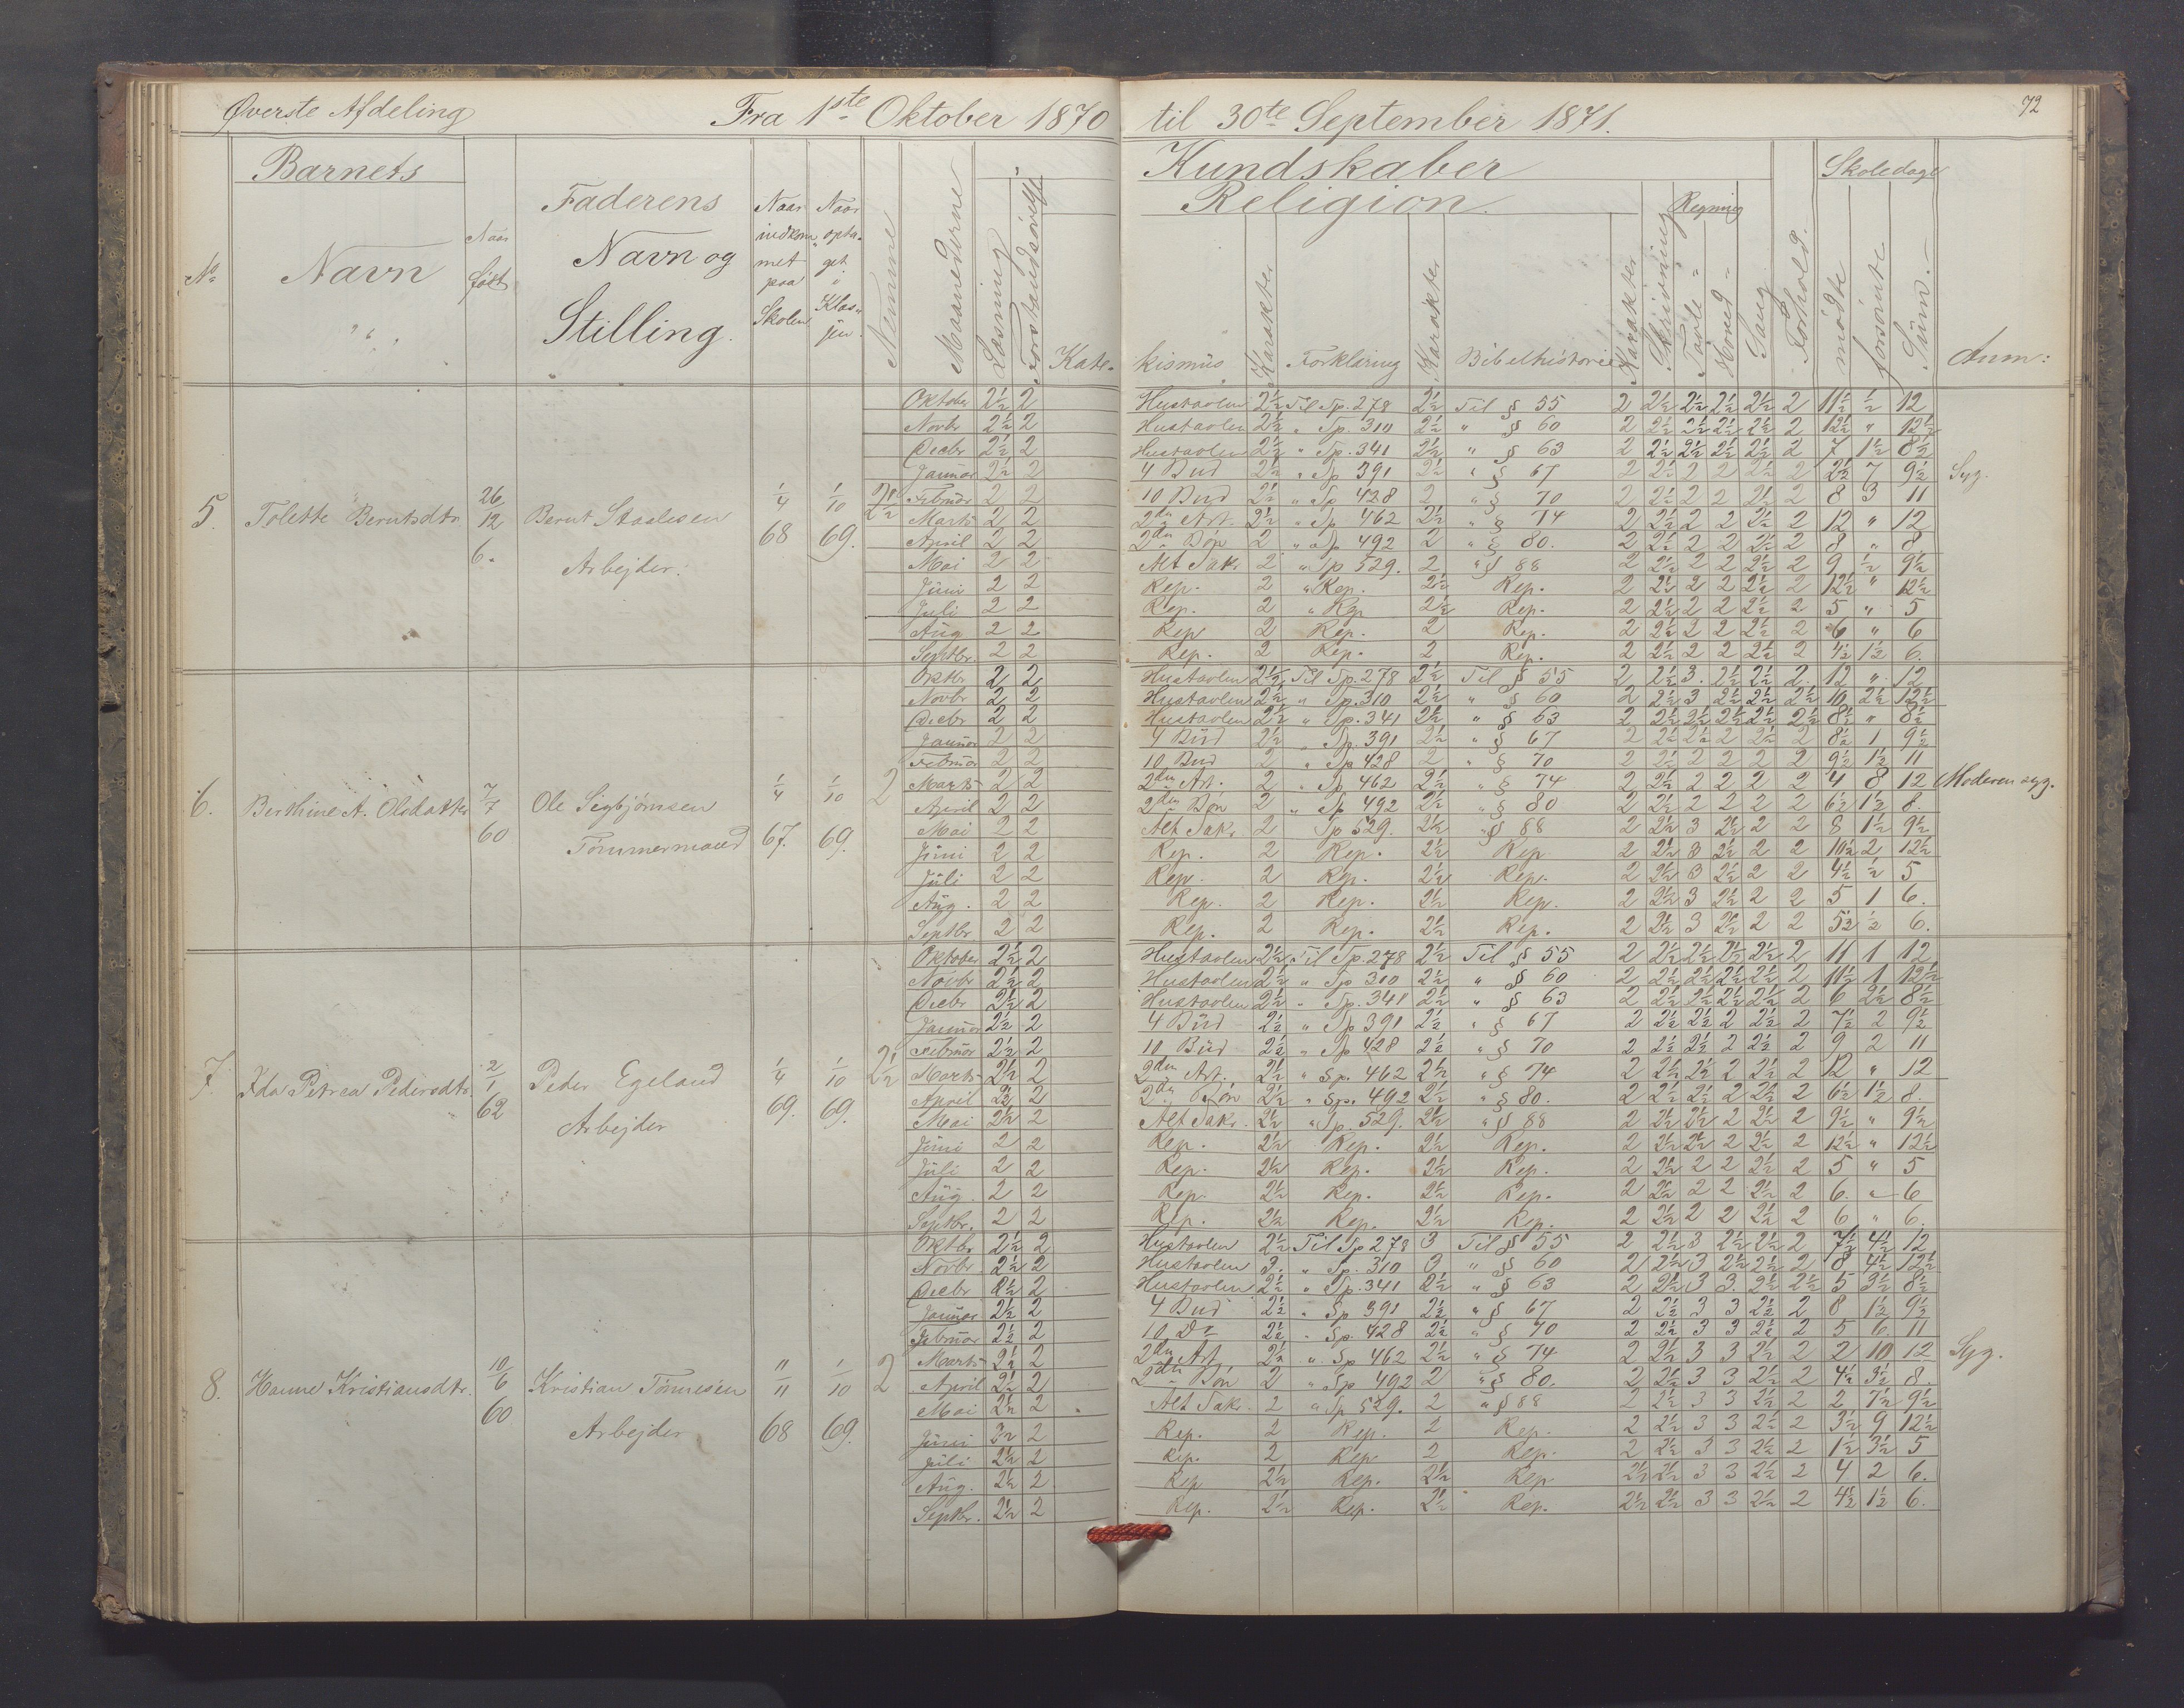 Øverste Afdeling Fra 1ste Oktober 1870 til 30te September 1871. 72
Barnets Kundskaber Skoledage
Religion. Regning
No Navn Naar født Faderens Navn og Stilling. Naar indkommet paa Skolen Naar optaget i Klassen Nemme Maanederne Læsning Forstandsøvelse Katekismus Karakter Forklaring Karakter Bibelhistorie Karakter Skrivning Tavle Hoved Sang Forhold. mødte forsømte Sum. Anm:
Oktober 2½ 2 Hustavlen 2½ Til Sp. 278 2½ Til § 55 2 2½ 2½ 2½ 2½ 2 11½ ½ 12
Novbr 2½ 2 Hustavlen 2½ " Sp. 310 2½ " § 60 2 2½ 2½ 2½ 2½ 2 12½ " 12½
Decbr 2½ 2 Hustavlen 2½ " Sp. 341 2½ " § 63 2 2½ 2½ 2½ 2½ 2 7 1½ 8½
Januar 2½ 2 4 Bud 2½ " Sp 391 2½ " § 67 2 2½ 2 2 2½ 2 2½ 7 9½ Syg.
5. Tolette Berntsdtr 26/12 6. Bernt Staalesen Arbejder. 1/4 68 1/10 69. 2½
Februar 2 2 10 Bud 2½ " Sp 428 2 " § 70 2 2½ 2 2 2½ 2 8 3 11
Marts 2 2 2den Art. 2½ " Sp 462 2½ " § 74 2 2½ 2 2 2½ 2 12 " 12
April 2 2 2den Bøn 2 " Sp 492 2 " § 80. 2 2½ 2 2 2½ 2 8 " 8
Mai 2 2 Alt Sakr. 2 " Sp 529. 2 " § 88 2 2½ 2 2 2½ 2 9 ½ 9½
Juni 2 2 Rep. 2 " Rep. 2½ Rep. 2 2½ 2 2 2½ 2 12½ " 12½
Juli 2 2 Rep. 2 " Rep 2½ Rep. 2 2½ 2 2 2½ 2 5 " 5
Aug 2 2 Rep 2 Rep. 2 Rep. 2 2½ 2 2 2½ 2 6 " 6
Septbr. 2 2 Rep. 2 Rep. 2 Rep. 2 2½ 2 2 2½ 2 4½ 1½ 6.
Oktbr 2 2 Hustavlen 2½ Til Sp. 278 2½ Til § 55 2 2½ 3. 2½ 2½ 2. 12 " 12
Novbr 2 2 Hustavlen 2½ " Sp. 310 2½ " § 60 2 2½ 3 2½ 2½ 2½ 10 2½ 12½
Decbr 2 2 Hustavlen 2½ " Sp. 341 2½ " § 63 2 2½ 2½ 2½ 2½ 2½ 8½ " 8½
Januar 2 2 4 Bud 2½ " Sp. 391 2½ " § 67 2 2½ 2½ 2 2½ 2 8½ 1 9½
Februar 2 2 10 Bud 2 " Sp 428 2 " § 70 2 2½ 2 2 2 2 9½ 1½ 11
6. Berthine A. Olsdatter 7/7 60 Ole Sigbjørnsen Tømmermand 1/4 67. 1/10 69. 2
Marts 2 2 2den Art. 2 " Sp 462 2½ " § 74 2 2½ 2 2 2 2 4 8 12 Moderen syg.
April 2 2 2den Bøn 2 " Sp 492 2½ " § 80 2 2½ 2 2 2 2 6½ 1½ 8.
Mai 2 2 Alt Sakr. 2 Sp 529. 2½ " § 88 2 2½ 3 2½ 2 2 8 1½ 9½
Juni 2 2 Rep. 2 Rep. 2½ Rep 2 2½ 3 2½ 2 2 10½ 2 12½
Juli 2 2 Rep. 2 Rep. 2½ Rep. 2 2½ 3 2½ 2 2 4½ ½ 5
Aug. 2 2 Rep. 2 Rep. 2½ Rep. 2 2½ 3 2½ 2 2 5 1 6.
Septbr. 2 2 Rep. 2 Rep. 2½ Rep. 2 2½ 3 2½ 2 2 5½ ½ 6.
Oktober 2½ 2 Hustavlen 2½ Til Sp. 278 2½ Til § 55 2 2½ 2½ 2½ 2½ 2 11 1 12
Novbr 2½ 2 Hustavlen 2½ " Sp 310 2½ " § 60 2 2½ 2½ 2½ 2½ 2 10½ 1 12½
Decbr 2½ 2 Hustavlen 2½ " Sp. 341 2½ " § 63 2 2½ 2½ 2½ 2½ 2 6 2½ 8½
Januar 2½ 2 4 Bud 2½ " Sp 391 2½ " § 67 2 2½ 2½ 2 2½ 2 7½ 2 9½
Februar 2½ 2 10 Bud 2½ " Sp 428 2½ " § 70 2 2½ 2½ 2 2½ 2 9 2 11
7. Ida Petrea Pedersdtr. 2/1 62 Peder Egeland Arbejder 1/4 69. 1/10 69. 2½
Marts 2½ 2 2den Art. 2½ " Sp. 462 2½ " § 74 2 2½ 2½ 2 2½ 2 12 " 12
April 2½ 2 2den Bøn 2½ " Sp. 492 2½ " § 80. 2 2½ 2½ 2 2½ 2 6½ 1½ 8.
Mai 2½ 2 Alt Sakr. 2½ " Sp. 529. 2½ " § 88 2 2½ 2½ 2 2½ 2 9½ " 9½
Juni 2 2 Rep. 2½ Rep. 2½ Rep. 2 2½ 2½ 2 2½ 2 12½ " 12½
Juli 2 2 Rep. 2½ Rep. 2½ Rep. 2 2½ 2 2 2½ 2 5 " 5
Aug. 2 2 Rep. 2½ Rep. 2½ Rep. 2 2½ 2 2 2½ 2 6. " 6
Septbr. 2 2 Rep. 2½ Rep. 2½ Rep. 2 2½ 2 2 2½ 2 6 " 6.
Oktbr 2½ 2 Hustavlen 2½ Til Sp 278 3 Til § 55 2 2½ 3 2½ 2½ 2 7½ 4½ 12
Novbr. 2½ 2 Hustavlen 3. " Sp. 310 3 " § 60 2 2½ 3 2½ 2½ 2 8 4½ 12½
Decbr 2½ 2 Hustavlen 2½ " Sp. 341 2½ " § 63 2 2½ 3 3. 2½ 2½ 5 3½ 8½
Januar 2½ 2 4 Bud 2½ " Sp 391 2½ " § 67 2 2½ 3 3 2½ 2 8 1½ 9½
Februar 2½ 2 10 Do 2½ " Sp. 428 2½ " § 70 2 2½ 3 3 2½ 2 5 6. 11
8. Hanne Kristiansdtr. 10/6 60 Kristian Tønnesen Arbejder 11/11 68 1/10 69. 2
Marts 2½ 2 2den Art 2½ " Sp 462 2½ " § 74 2 2½ 3 3 2½ 2 2 10 12 Syg.
April 2½ 2 2den Bøn 2 " Sp 492 2 " § 80. 2 2½ 3 3 2½ 2 4½ 3½ 8.
Mai 2½ 2 Alt Sakr. 2 " Sp 529. 2 " § 88 2 2½ 3 3 2½ 2 2 7½ 9½
Juni 2½ 2 Rep. 2 Rep. 2 Rep. 2 2½ 3 3 2½ 2 3½ 9 12½
Juli 2½ 2 Rep. 2 Rep 2 Rep. 2 2½ 3 3 2½ 2 1½ 3½ 5
Aug. 2½ 2 Rep 2½ Rep. 2½ Rep 2½ 2½ 3 3 2½ 2 4 2 6.
Septbr. 2½ 2 Rep. 2½ Rep. 2½ Rep. 2½ 2½ 3 3 2½ 2 4½ 1½ 6.